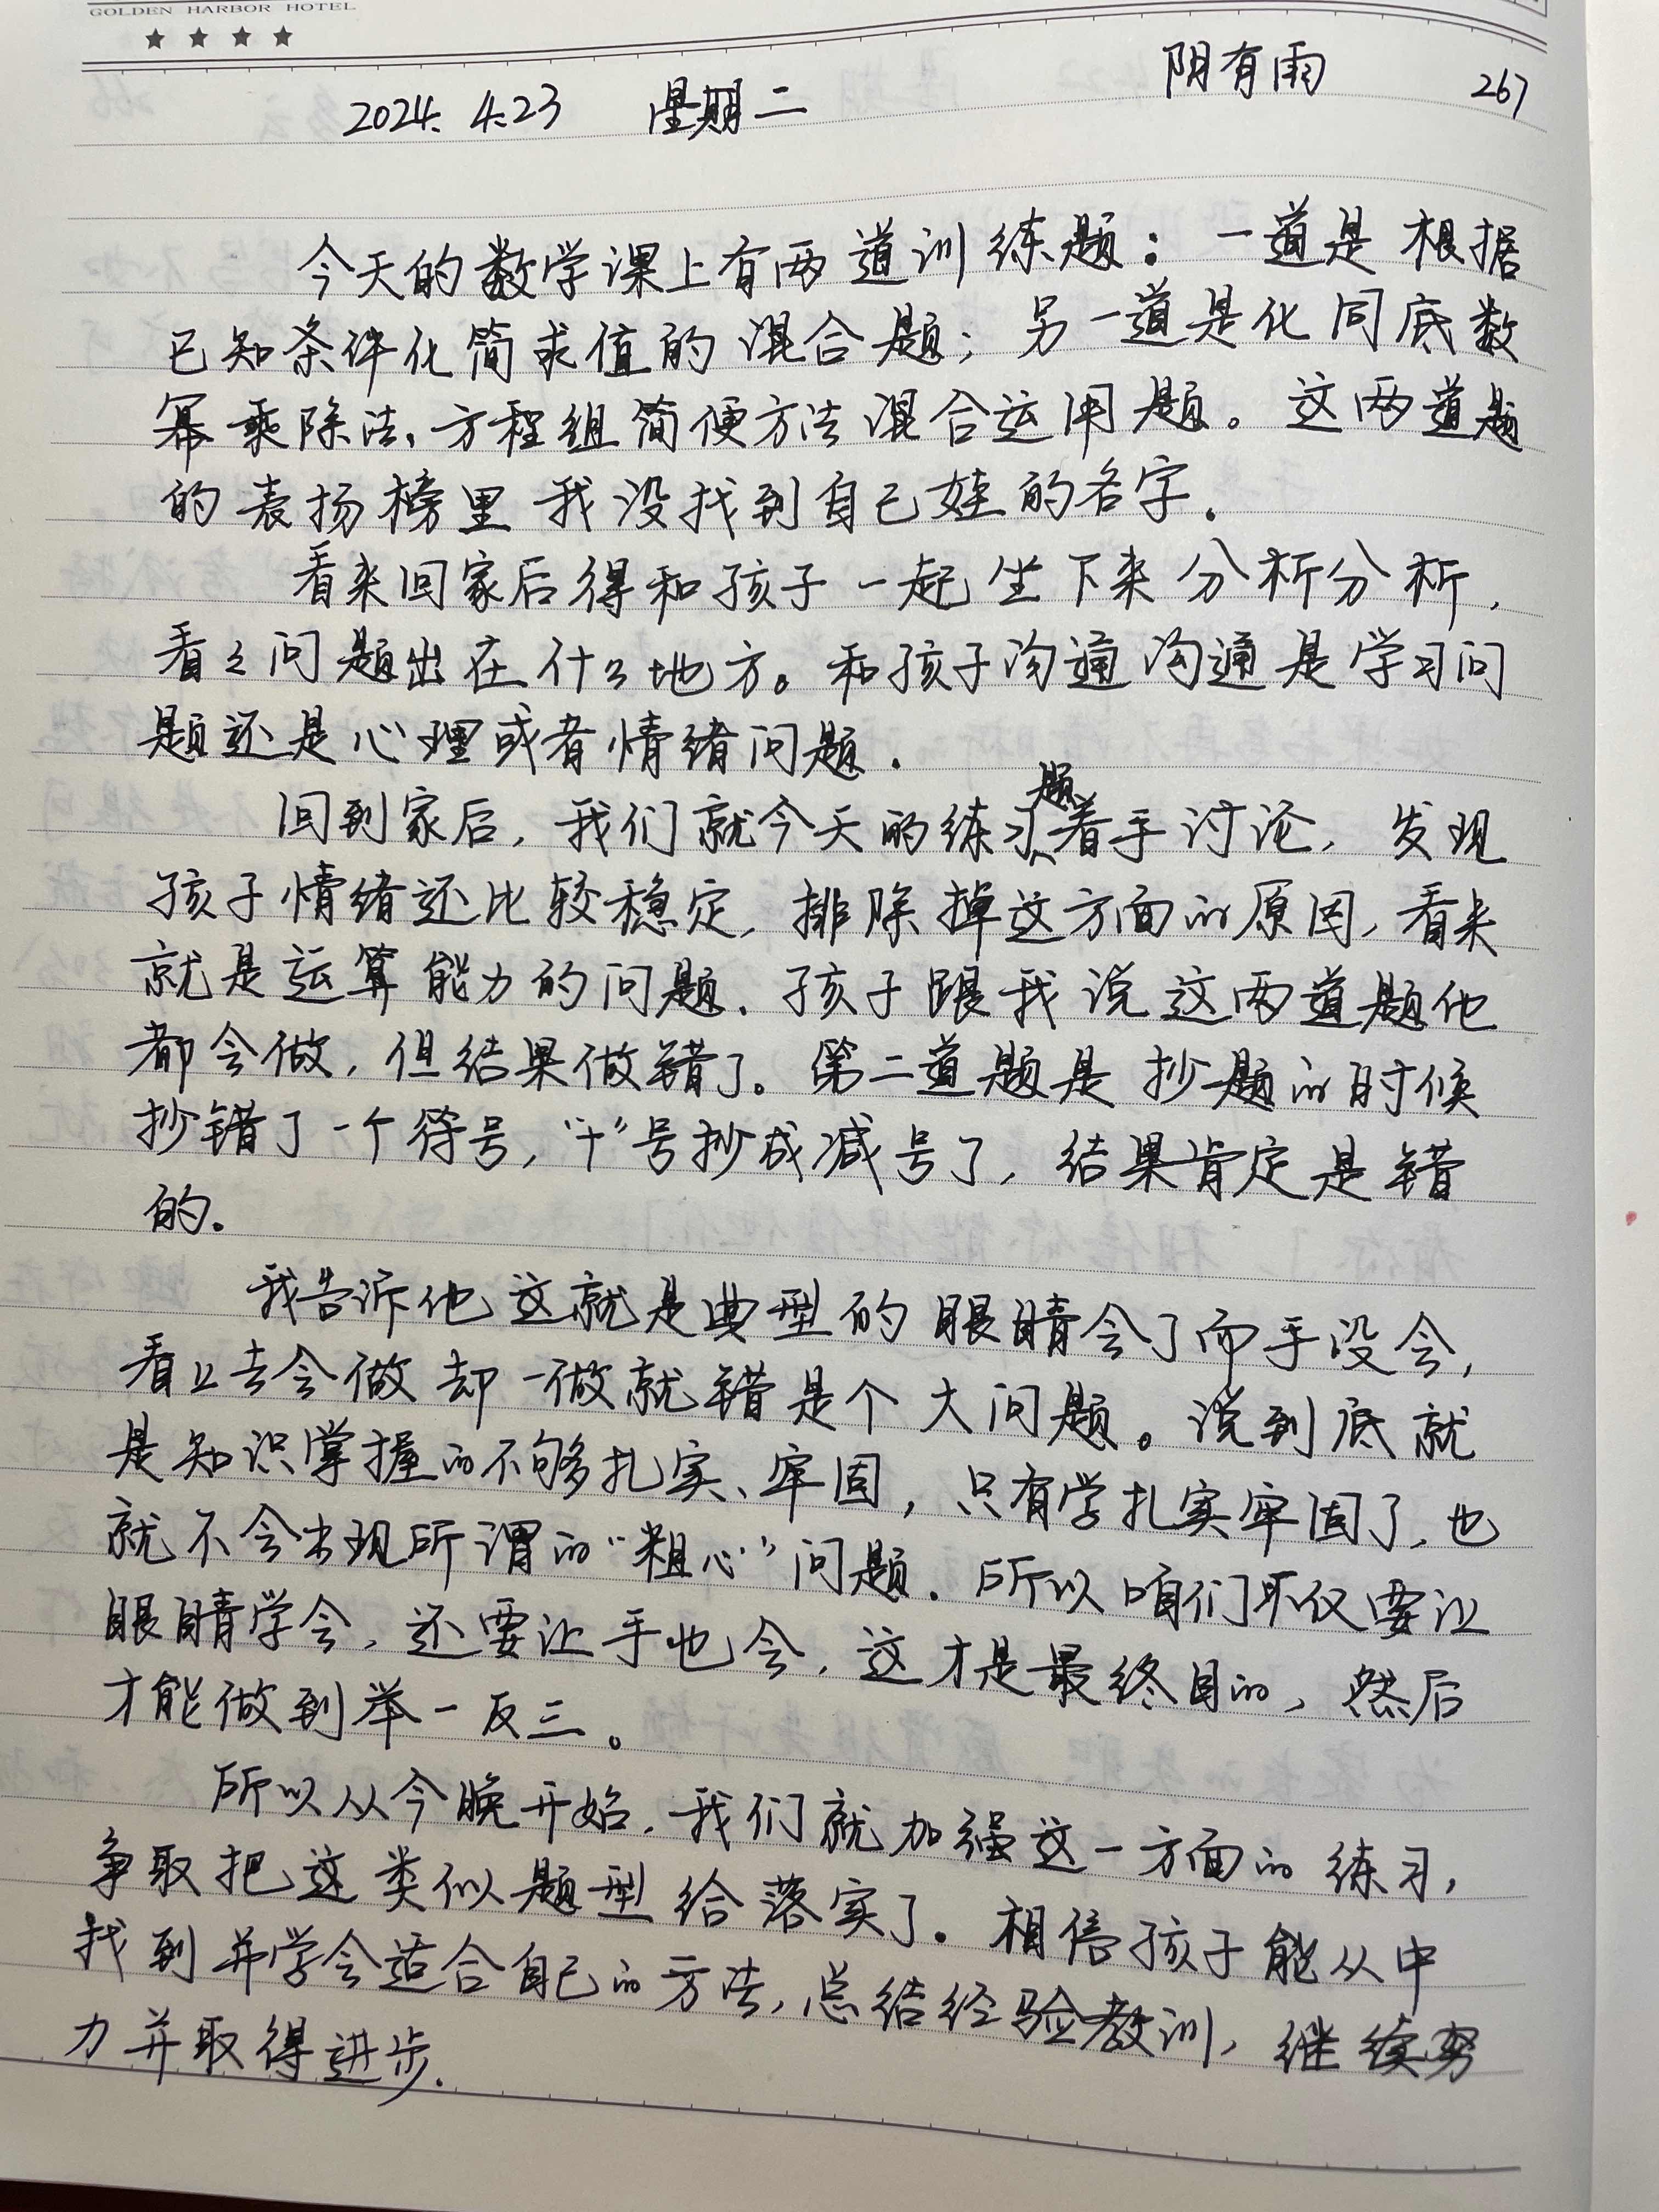 GOLDEN HARBOR HOTEL
2024. 4.23 星期二 阴有雨 267
今天的数学课上有两道训练题：一道是根据
已知条件化简求值的混合题；另一道是化同底数
幂乘除法，方程组简便方法混合运用题。这两道题
的表扬榜里我没找到自己娃的名字。
看来回家后得和孩子一起坐下来分析分析，
看看问题出在什么地方。和孩子沟通沟通是学习问
题还是心理或者情绪问题。
回到家后，我们就今天的练习题着手讨论，发现
孩子情绪还比较稳定，排除掉这方面的原因，看来
就是运算能力的问题。孩子跟我说这两道题他
都会做，但结果做错了。第二道题是抄题的时候
抄错了一个符号，“十”号抄成减号了，结果肯定是错
的。
我告诉他这就是典型的眼睛会了而手没会，
看上去会做却一做就错是个大问题。说到底就
是知识掌握的不够扎实、牢固，只有学扎实牢固了，也
就不会出现所谓的“粗心”问题。所以咱们不仅要让
眼睛学会，还要让手也会，这才是最终目的，然后
才能做到举一反三。
所以从今晚开始，我们就加强这一方面的练习，
争取把这类似题型给落实了。相信孩子能从中
找到并学会适合自己的方法，总结经验教训，继续努
力并取得进步.